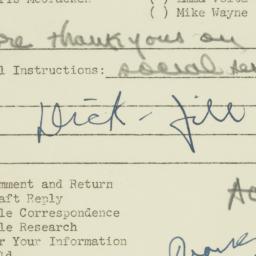 ( ) Mike Wayne
re thank yous on
l Instructions: social se
Dick - Jill
mment and Return
aft Reply
le Correspondence
le Research
r Your Information